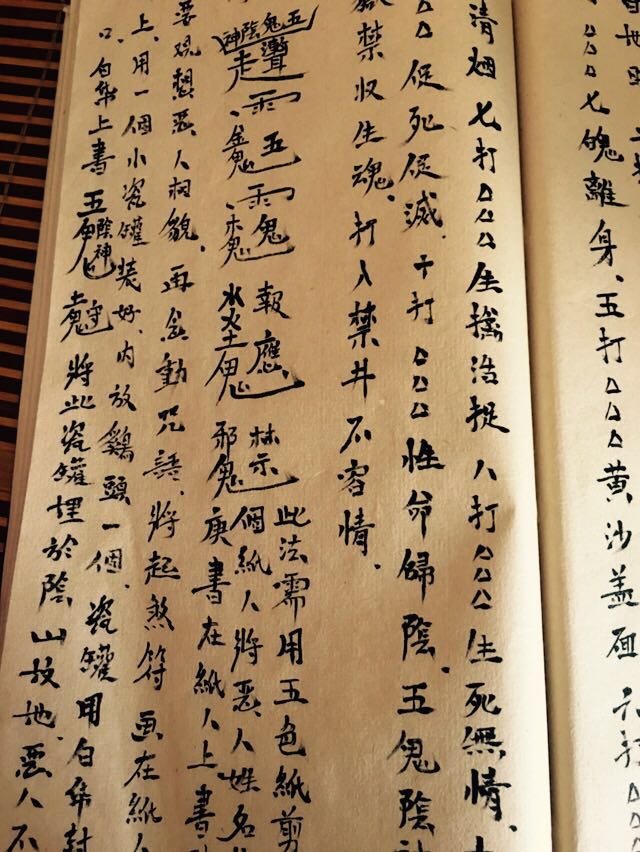 自地
△△△七魄離身、五打△△△黃沙盖面六打△△△
清烟七打△△△生擒活捉八打△△△生死無情、
△△促死促滅、十打△△△性命歸陰、五鬼陰神
禁收生魂、打入禁井不容情、
五鬼陰神
五鬼報應禁
金鬼、木鬼、水火土鬼邪鬼
此法需用五色紙剪
個紙人將惡人姓名
庚書在紙人上書
要观想惡人相貌、再念動咒語、將起煞符画在紙人
上、用一個小瓷罐装好、内放鷄頭一個、瓷罐用白布封
口、白布上書五鬼陰神守將此瓷罐埋於陰山坟地、惡人不